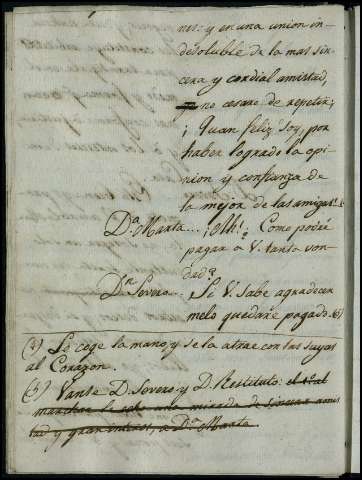 nes: y en una union in-
disoluble de la mas sin-
cera y cordial amistad,
no cesare de repetir;
¡Quan feliz soy, por
haber logrado la opi-
nion y confianza de
la mejor de las amigas!
D.ª Marta... ¡Ah! ¿Como podré
pagar a V. tanta bon-
dad?
D.n Severo... Si V. sabe agradecer
melo quedaré pagado. (5)
(4) Le coge la mano, y se la atrae con las suyas
al Corazon.
(5) Vanse D. Severo y D. Restituto: el 1.º al
marchar le echa una mirada de sincera amis
tad y gran interes, a D.ª Marta.